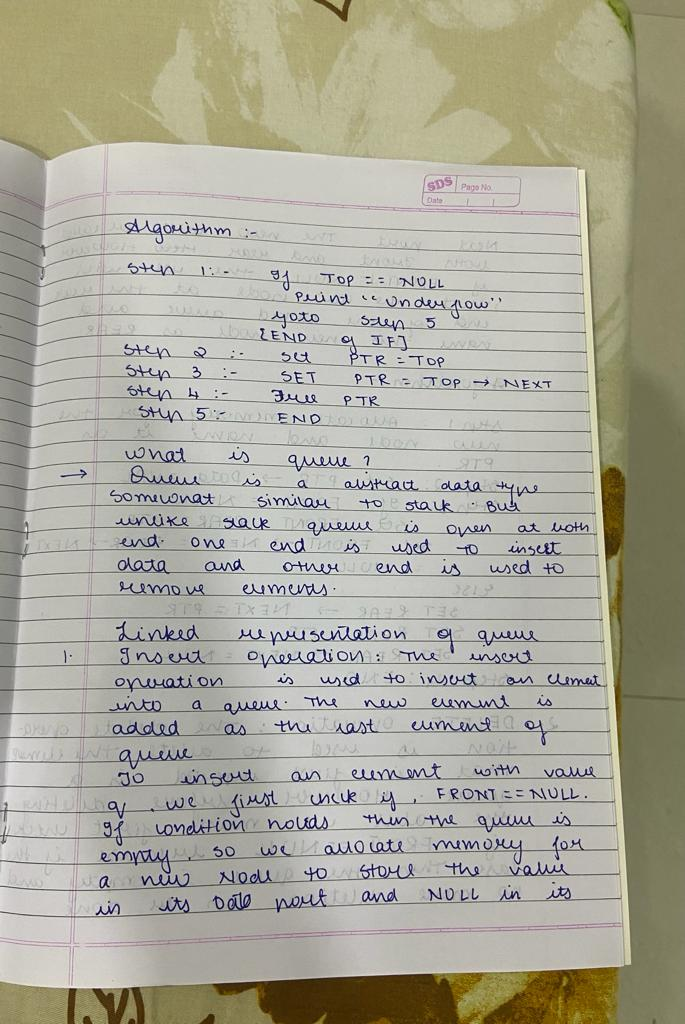 SDS Page No.
Date
Algorithm :-
Step 1:- If TOP == NULL
Print "Underflow"
goto Step 5
[END of IF]
Step 2 :- Set PTR = TOP
Step 3 :- SET PTR = TOP → NEXT
Step 4 :- Free PTR
Step 5:- END
What is queue?
→ Queue is a abstract data type
somewhat similar to stack. But
unlike stack queue is open at both
end. one end is used to insert
data and other end is used to
remove elements.
Linked representation of queue
1. Insert operation: The insert
operation is used to insert an element
into a queue. The new element is
added as the last element of
queue
To insert an element with value
9, we first check if, FRONT == NULL.
If condition holds then the queue is
empty, so we allocate memory for
a new Node to store the value
in its Data part and NULL in its